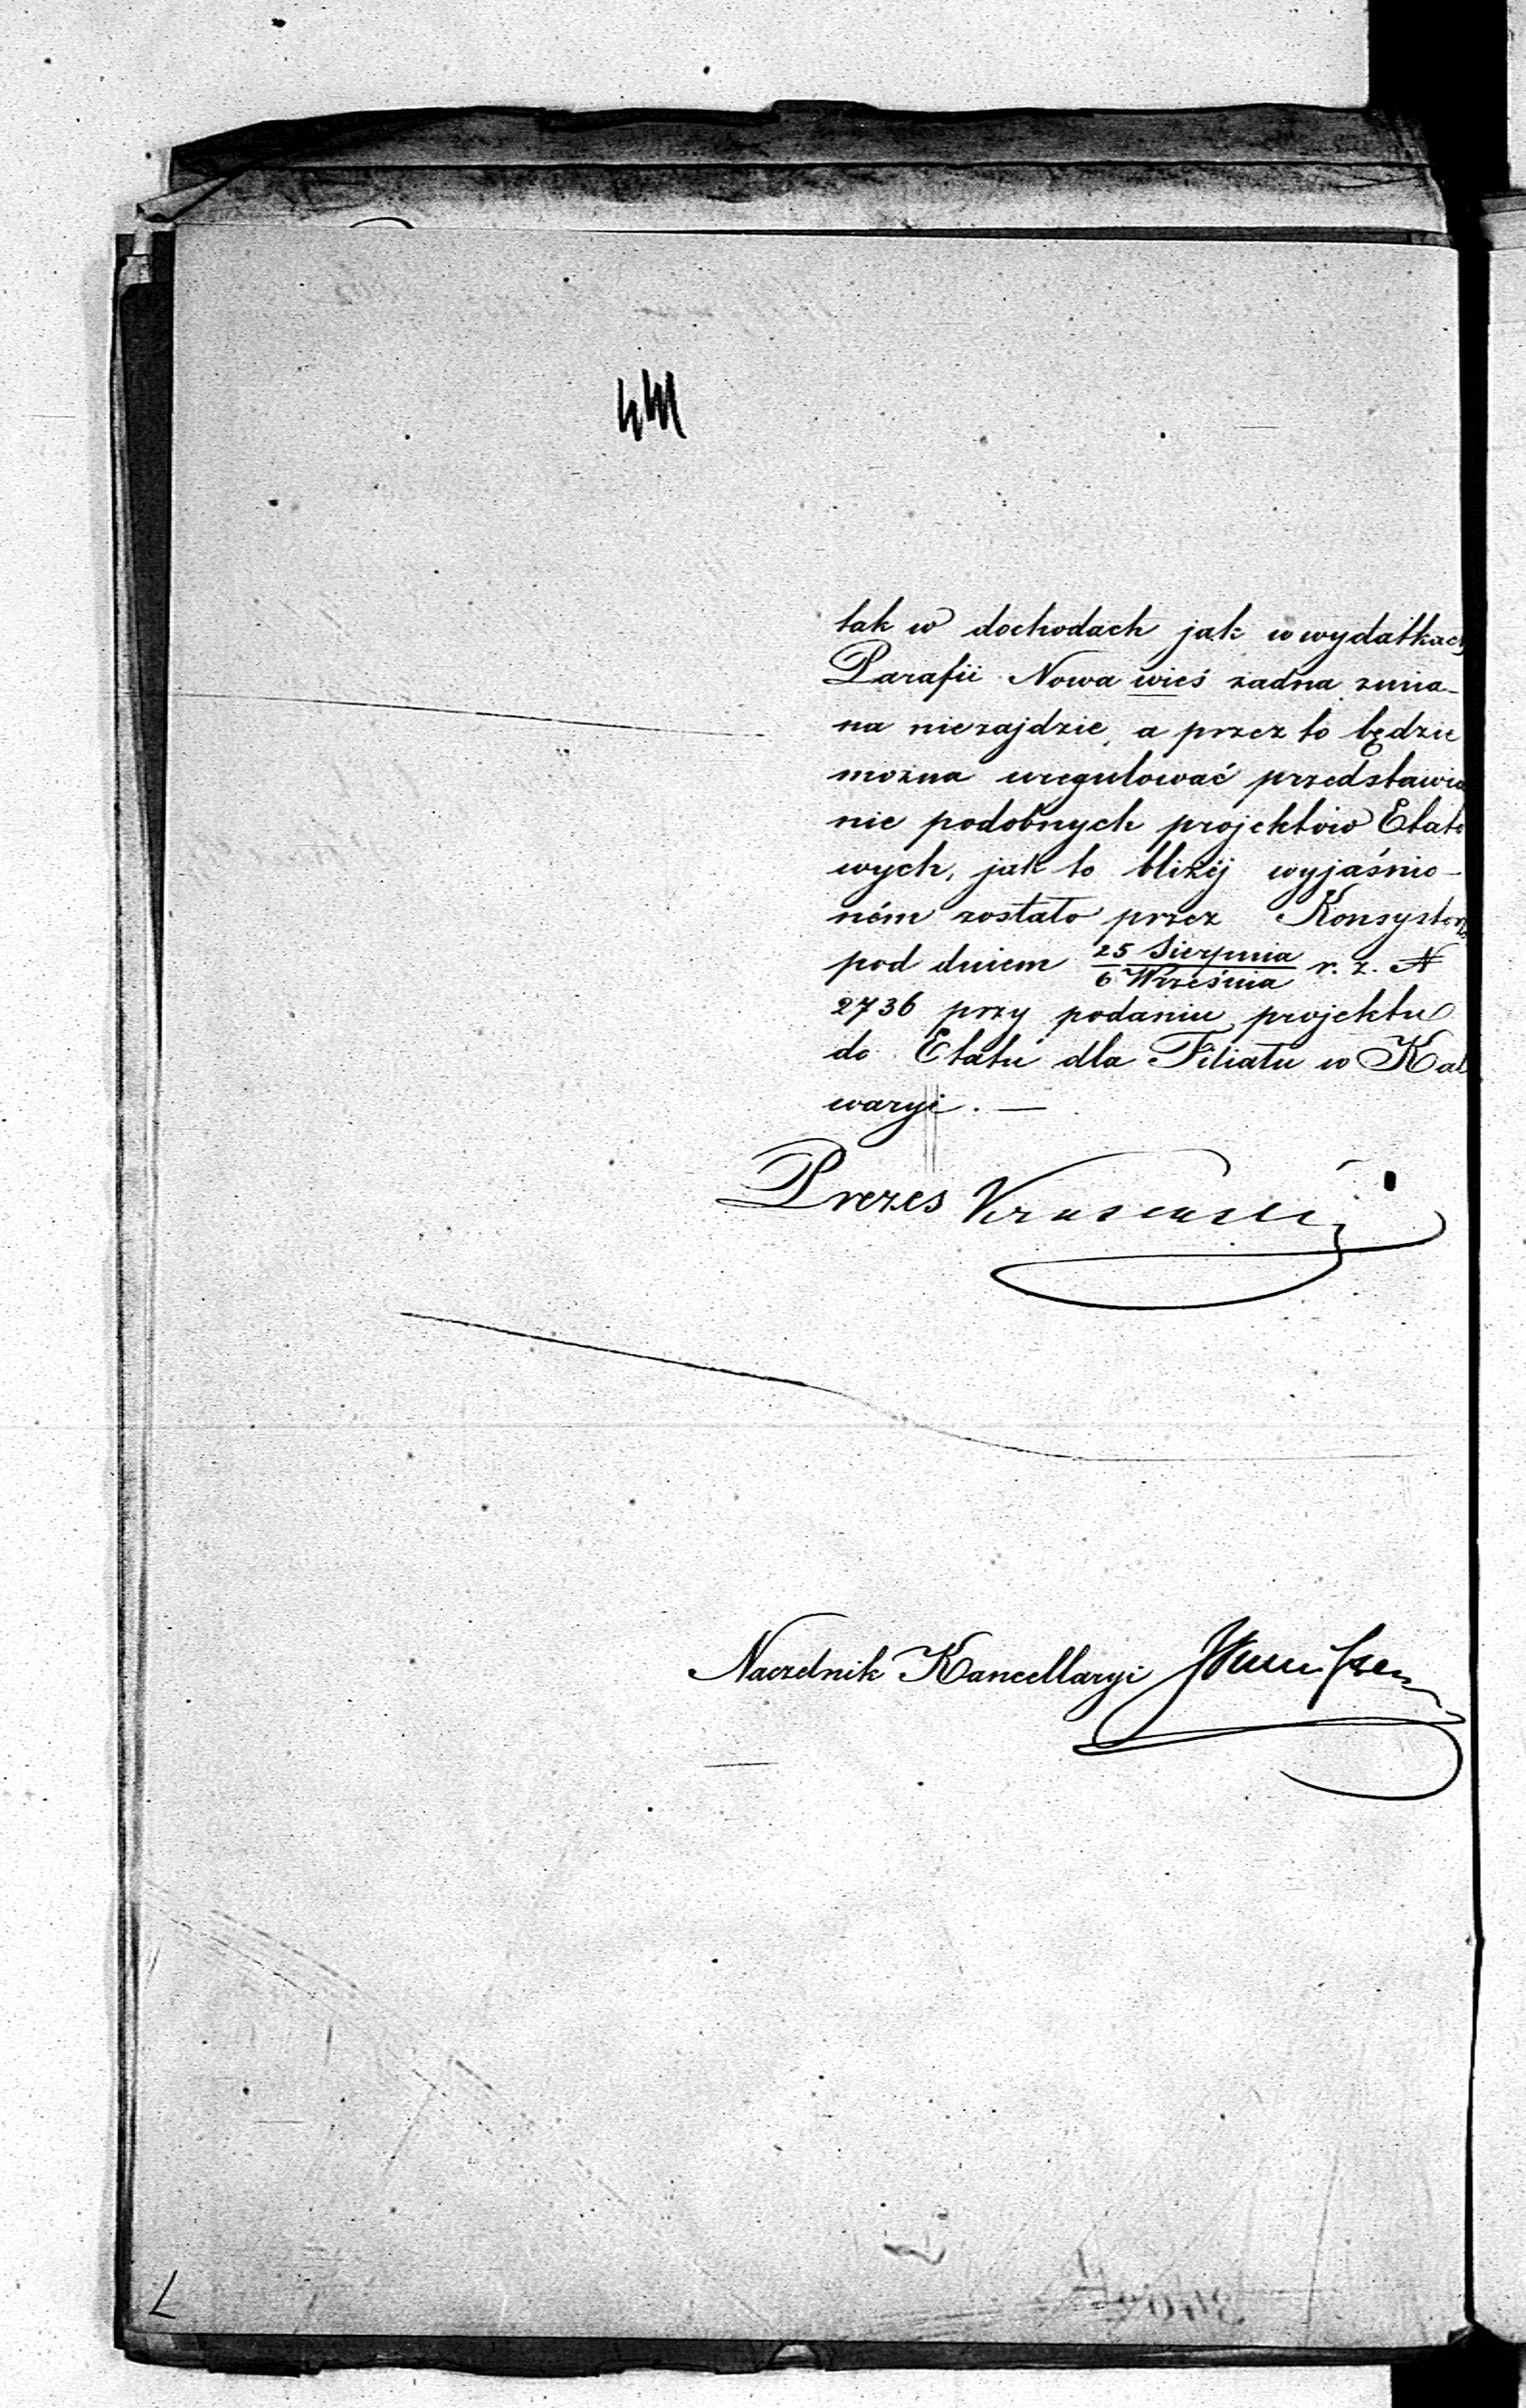 tak w dochodach jak w wydatkach
Parafii Nowa wieś zadna zmia-
na niezajdzie, a przez to będzie
mozna uregulować przedstawia
nie podobnych projektów Etato
wych, jak to bliżéj wyjaśnio-
ném zostało przez Konsystorz
pod dniem 25 Sierpnia / 6 Września r. z. №
2736 przy podaniu projektu
do Etatu dla Filiału w Kal
waryi. —
Prezes
Naczelnik Kancellaryi